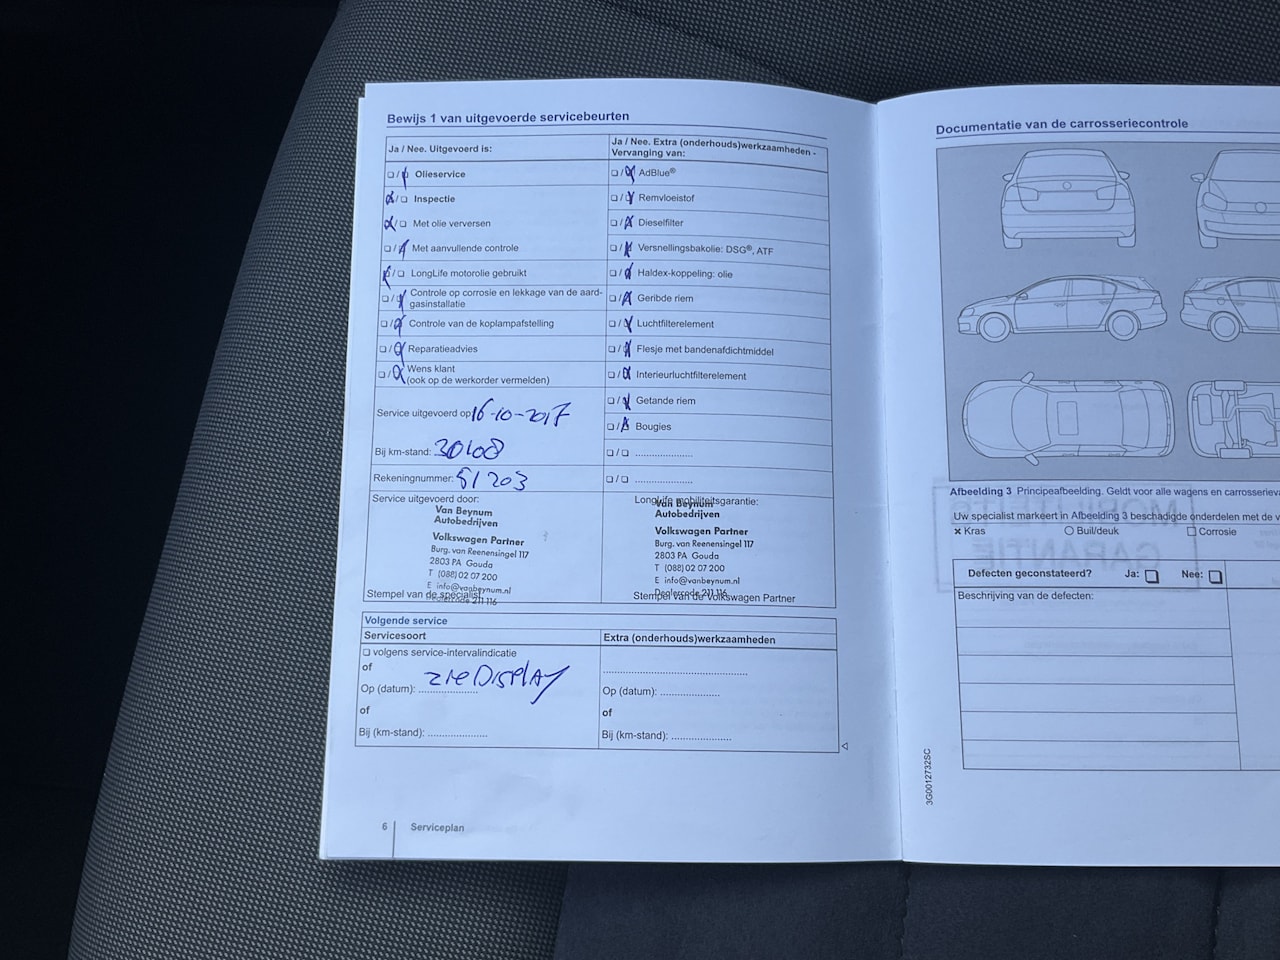 Bewijs 1 van uitgevoerde servicebeurten
Ja / Nee. Uitgevoerd is:
Olieservice
Inspectie
Met olie verversen
Met aanvullende controle
LongLife motorolie gebruikt
Controle op corrosie en lekkage van de aard-
gasinstallatie
Controle van de koplampafstelling
Reparatieadvies
Wens klant
(ook op de werkorder vermelden)
Service uitgevoerd op 16-10-2017
Bij km-stand: 30108
Rekeningnummer: 51203
Service uitgevoerd door:
Van Beynum
Autobedrijven
Volkswagen Partner
Burg. van Reenensingel 117
2803 PA Gouda
T (088) 02 07 200
E info@vanbeynum.nl
Dealercode 211 116
Stempel van de specialist
Ja / Nee. Extra (onderhouds)werkzaamheden -
Vervanging van:
AdBlue®
Remvloeistof
Dieselfilter
Versnellingsbakolie: DSG®, ATF
Haldex-koppeling: olie
Geribde riem
Luchtfilterelement
Flesje met bandenafdichtmiddel
Interieurluchtfilterelement
Getande riem
Bougies
LongLife mobiliteitsgarantie:
Van Beynum
Autobedrijven
Volkswagen Partner
Burg. van Reenensingel 117
2803 PA Gouda
T (088) 02 07 200
E info@vanbeynum.nl
Dealercode 211 116
Stempel van de Volkswagen Partner
Volgende service
Servicesoort
volgens service-intervalindicatie
of
Op (datum): ZIE DISPLAY
of
Bij (km-stand):
Extra (onderhouds)werkzaamheden
Op (datum):
of
Bij (km-stand):
6 Serviceplan
Documentatie van de carrosseriecontrole
Afbeelding 3 Principeafbeelding. Geldt voor alle wagens en
Uw specialist markeert in Afbeelding 3 beschadigde onderdelen met de
Kras Buil/deuk Corrosie
MOBILITEITS
GARANTIE
Defecten geconstateerd? Ja: Nee:
Beschrijving van de defecten:
3G0012732SC